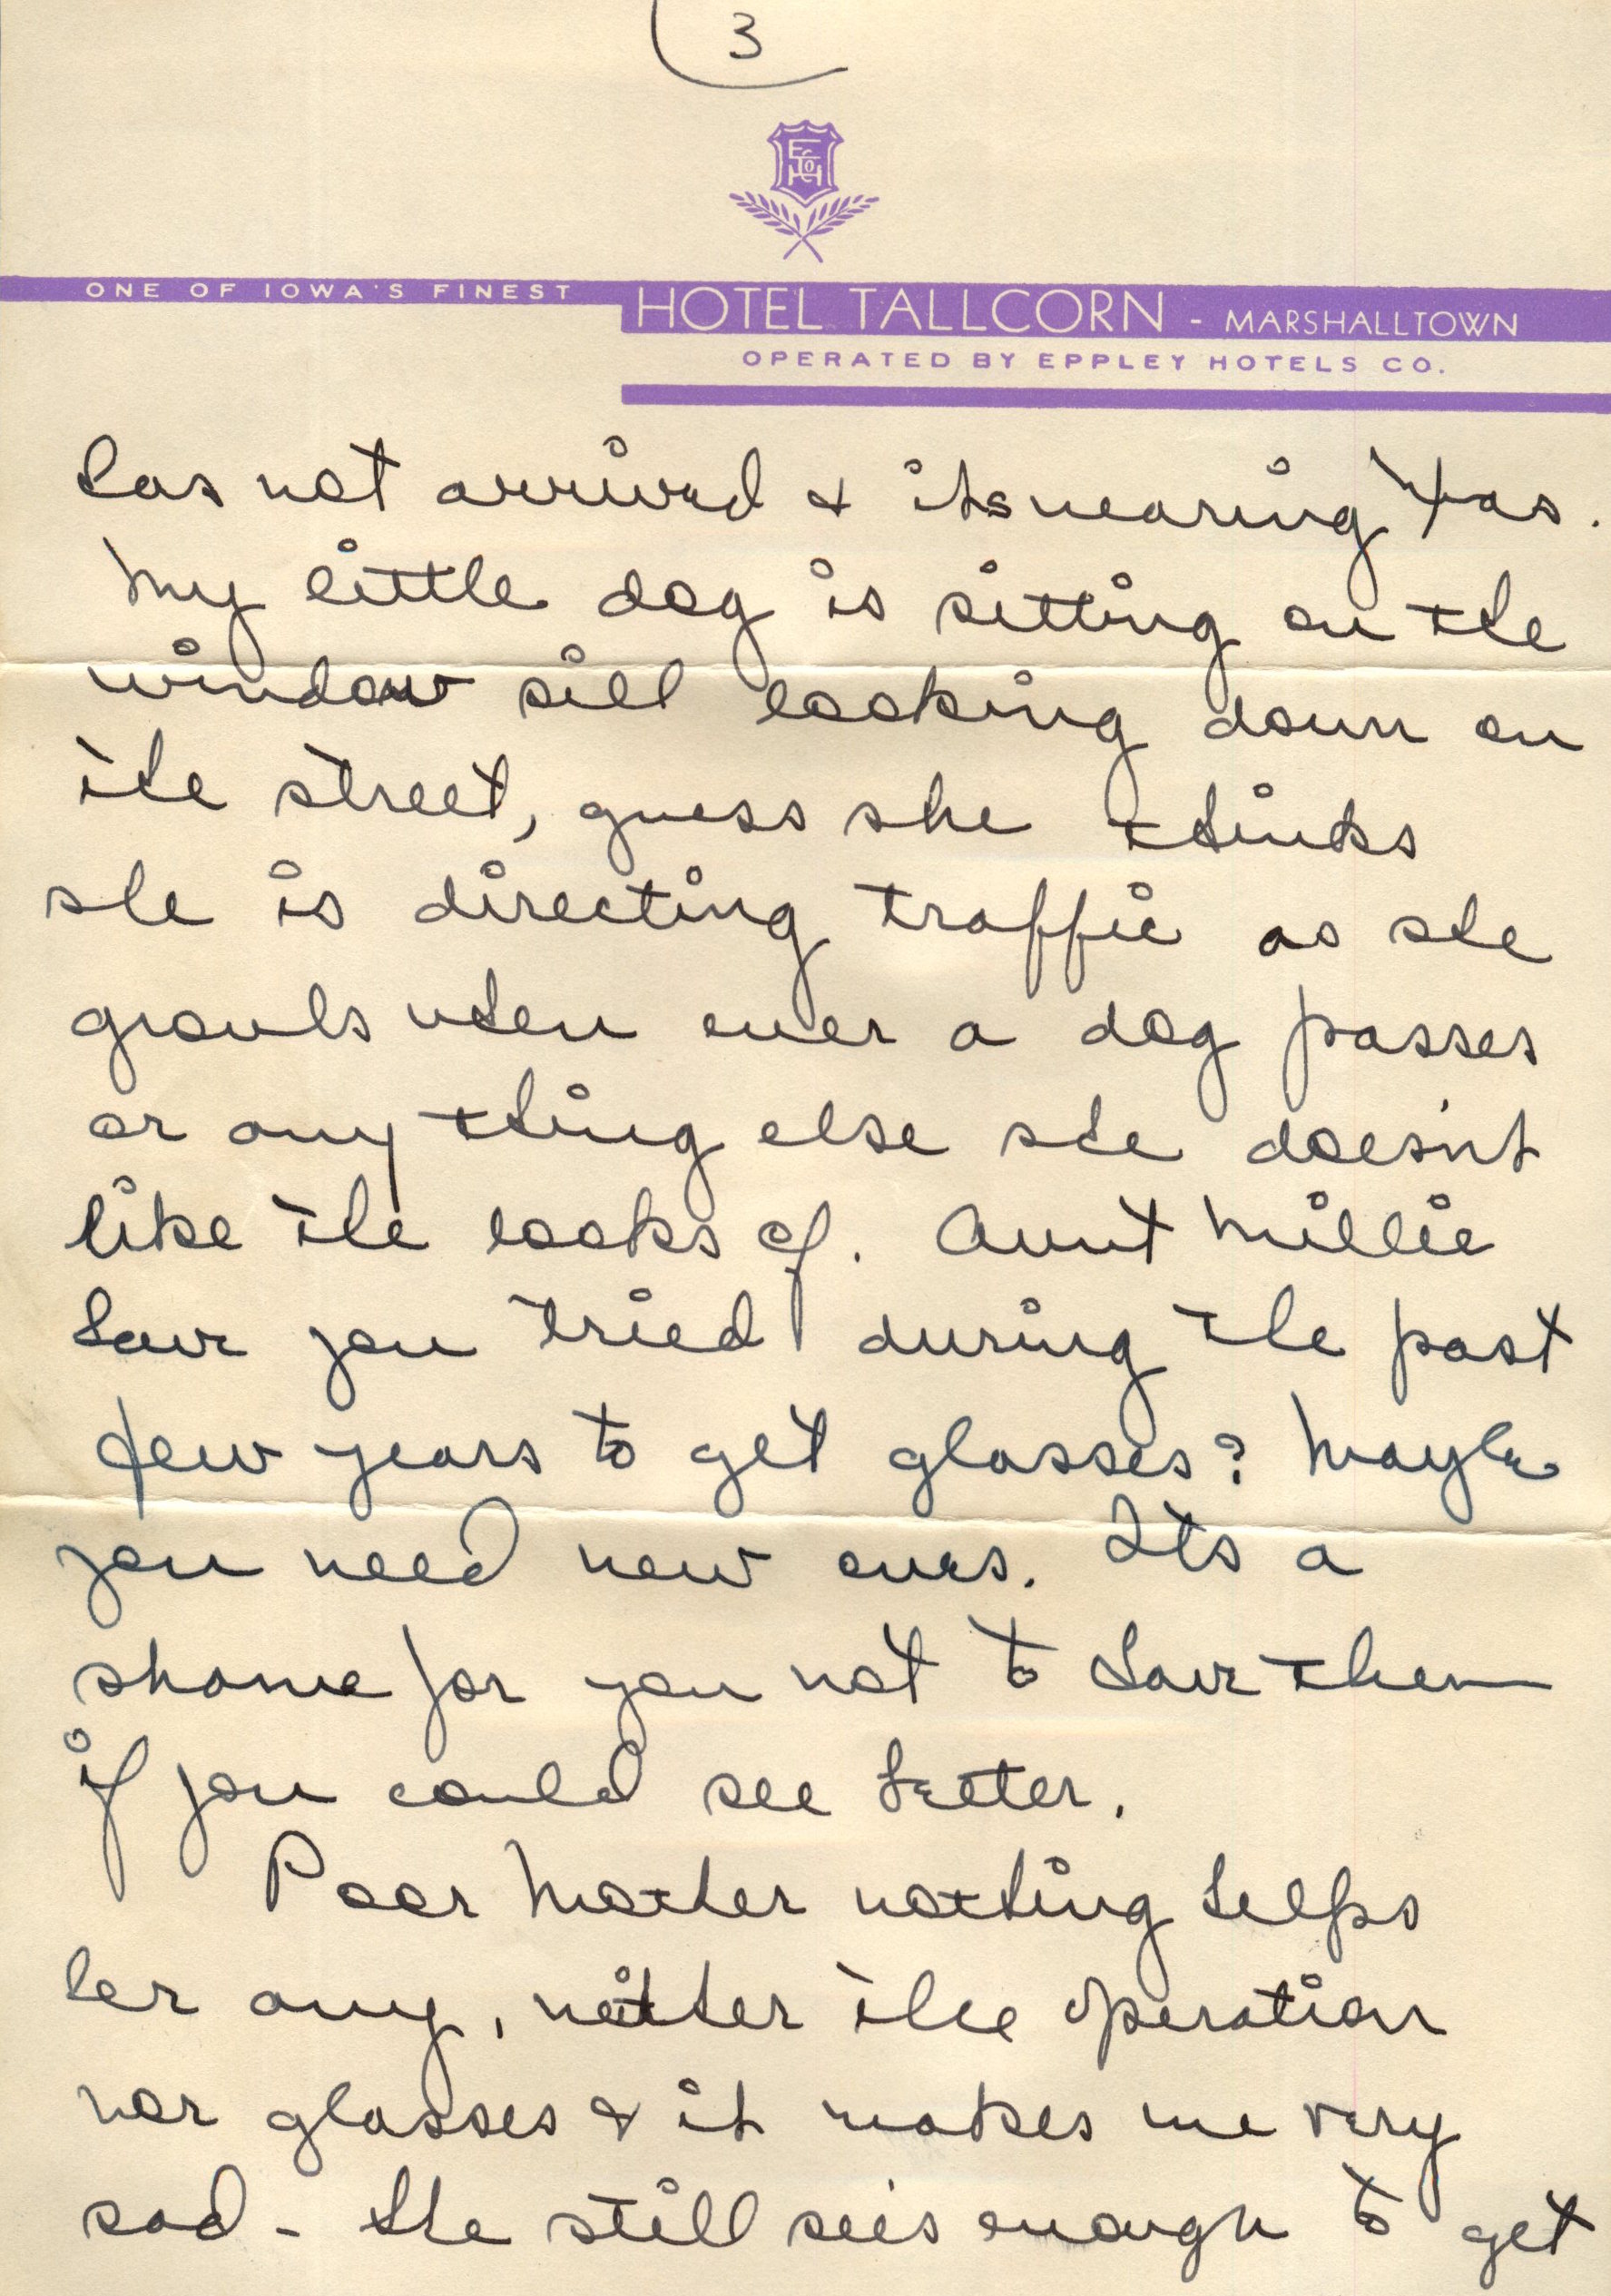 3
ONE OF IOWA'S FINEST
HOTEL TALLCORN - MARSHALLTOWN
OPERATED BY EPPLEY HOTELS CO.
has not arrived & its nearing Xas.
My little dog is sitting on the
window sill looking down on
the street, guess she thinks
she is directing traffic as she
growls when ever a dog passes
or any thing else she does'nt
like the looks of. Aunt Millie
have you tried during the past
few years to get glasses? Maybe
you need new ones. Its a
shame for you not to have them
if you could see better.
Poor Mother nothing helps
her any, neither the operation
nor glasses & it makes me very
sad - She still see's enough to get